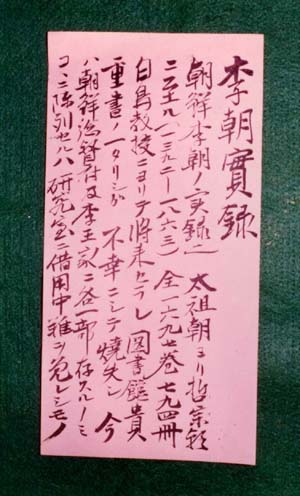 李朝實録
朝鮮李朝ノ実録ニ 太祖朝ヨリ哲宗朝
ニ至ル(一三九二―一八六三) 全一六九七巻七九四冊
白鳥教授ニヨリテ将来セラレ図書館貴
重書ノ一タリシガ 不幸ニシテ焼失シ 今
ハ朝鮮総督府及李王家ニ各一部存スルノミ
コヽニ陳列セルハ研究室ニ借用中難ヲ免レシモノ